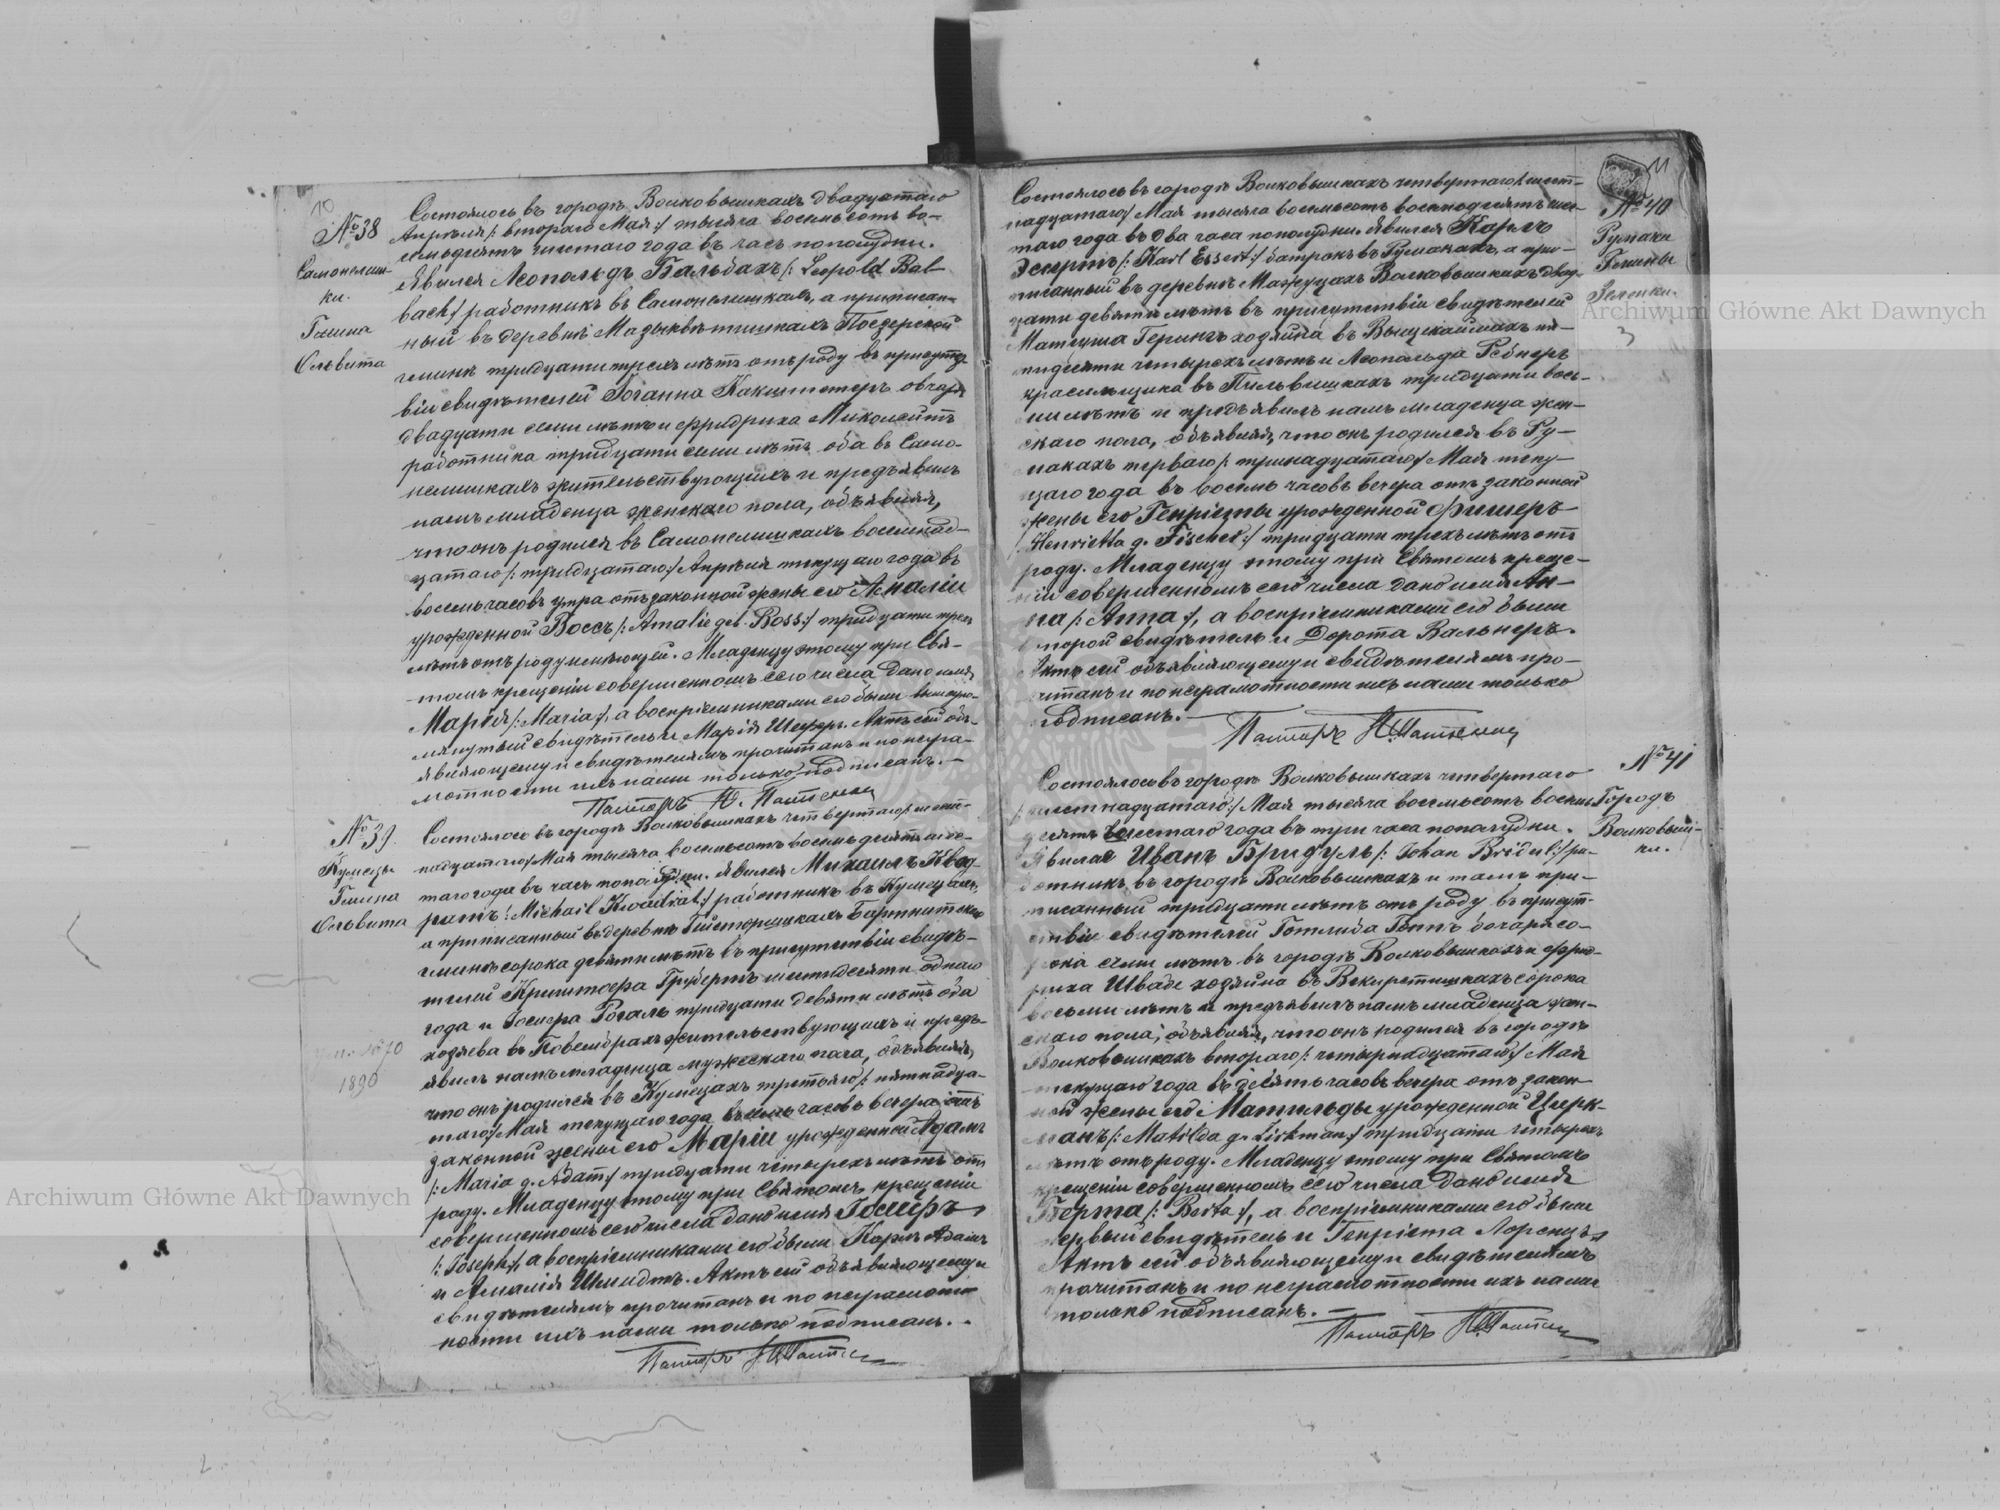 10
№ 38
Самонелиш-
ки.
Гмина
Ольвита
Состоялось въ городѣ Волковышкахъ двадцатаго
Апрѣля /: втораго Мая :/ тысяча восемьсотъ во-
семьдесятъ шестаго года въ часъ пополудни.
Явился Леопольдъ Бальбахъ /: Leopold Bal-
bach :/ работникъ въ Самонелишкахъ, а приписан-
ный въ деревнѣ Мазыкветишкахъ
гминѣ тридцати трехъ лѣтъ отъ роду въ присутст-
віи свидѣтелей Іоганна овчаря
двадцати семи лѣтъ и Фридриха Миколейтъ
работника тридцати семи лѣтъ оба въ Само-
нелишкахъ жительствующихъ и предъявилъ
намъ младенца женскаго пола, объявляя,
что онъ родился въ Самонелишкахъ восемнад-
цатаго /: тридцатаго :/ Апрѣля текущаго года въ
восемь часовъ утра отъ законной жены его Амаліи
урожденной Воссъ /: Amalie geb. Boss :/ тридцати трехъ
лѣтъ отъ роду имѣющей. Младенцу этому при Свя-
томъ крещеніи совершенномъ сего числа дано имя
Марія /: Maria :/, а воспріемниками его были вышеупо-
мянутый свидѣтель и Марія Шеферъ. Актъ сей объ-
являющему и свидѣтелямъ прочитанъ и по негра-
мотности ихъ нами только подписанъ. —
Пасторъ
№ 39.
Кумецы
Гмина
Ольвита
1890
Состоялось въ городѣ Волковышкахъ четвертаго /: шест-
надцатаго :/ Мая тысяча восемьсотъ восемьдесятъ шес-
таго года въ часъ пополудни. Явился Михаилъ Квад-
ратъ /: Michail Kwadrat :/ работникъ въ Кумецахъ,
а приписанный въ деревнѣ Гисторишкахъ Бартнинтской
гминѣ сорока девяти лѣтъ въ присутствіи свидѣ-
телей Криштофа Грубертъ шестидесяти одного
года и Іосифа Рогаль тридцати девяти лѣтъ оба
хозяева въ жительствующихъ и предъ-
явилъ намъ младенца мужескаго пола, объявляя,
что онъ родился въ Кумецахъ третьяго /: пятнадца-
таго :/ Мая текущаго года въ часовъ вечера отъ
законной жены его Маріи урожденной Адамъ
/: Maria g. Adam :/ тридцати четырехъ лѣтъ отъ
роду. Младенцу этому при Святомъ крещеніи
совершенномъ сего числа дано имя Іосифъ
/: Joseph :/, а воспріемниками его были Карлъ Адамъ
и Амалія Шмидтъ. Актъ сей объявляющему и
свидѣтелямъ прочитанъ и по неграмот-
ности ихъ нами только подписанъ. —
Пасторъ
11
№ 40
Румаки
Гмины
Зеленки.
3
Состоялось въ городѣ Волковышкахъ четвертаго /: шест-
надцатаго :/ Мая тысяча восемьсотъ восемьдесятъ шес-
таго года въ два часа пополудни явился Карлъ
Эсертъ /: Karl Essert :/ батракъ въ Румакахъ, а при-
писанный въ деревнѣ Мажуцахъ Волковышкахъ двад-
цати девяти лѣтъ въ присутствіи свидѣтелей
Матеуша Герингъ хозяина въ пя-
тидесяти четырехъ лѣтъ и Леопольда Ребнеръ
красильщика въ Пильвишкахъ тридцати вось-
ми лѣтъ и предъявилъ намъ младенца жен-
скаго пола, объявляя, что онъ родился въ Ру-
макахъ перваго /: тринадцатаго :/ Мая теку-
щаго года въ восемь часовъ вечера отъ законной
жены его Генріеты урожденной Фишеръ
/: Henrietta g. Fischer :/ тридцати трехъ лѣтъ отъ
роду. Младенцу этому при Святомъ креще-
ніи совершенномъ сего числа дано имя Ан-
на /: Anna :/, а воспріемниками его были
второй свидѣтель и Дорота Вальнеръ.
Актъ сей объявляющему и свидѣтелямъ про-
читанъ и по неграмотности ихъ нами только
подписанъ. —
Пасторъ
№ 41
Городъ
Волковыш-
ки.
Состоялось въ городѣ Волковышкахъ четвертаго
/: шестнадцатаго :/ Мая тысяча восемьсотъ восемь-
десятъ шестаго года въ три часа пополудни.
Явился Иванъ Бридуль /: Johan Bridul :/ ра-
ботникъ въ городѣ Волковышкахъ и тамъ при-
писанный тридцати лѣтъ отъ роду въ присут-
ствіи свидѣтелей Готлиба Гоппъ бочаря со-
рока семи лѣтъ въ городѣ Волковышкахъ и Фрид-
риха Шваде хозяина въ Векеретишкахъ сорока
восьми лѣтъ и предъявилъ намъ младенца жен-
скаго пола, объявляя, что онъ родился въ городѣ
Волковышкахъ втораго /: четырнадцатаго :/ Мая
текущаго года въ десять часовъ вечера отъ закон-
ной жены его Матильды урожденной Цирк-
манъ /: Matilda g. Zirkman :/ тридцати четырехъ
лѣтъ отъ роду. Младенцу этому при Святомъ
крещеніи совершенномъ сего числа дано имя
Берта /: Berta :/, а воспріемниками его были
первый свидѣтель и Генріета Лоренцъ.
Актъ сей объявляющему и свидѣтелямъ
прочитанъ и по неграмотности ихъ нами
только подписанъ. —
Пасторъ
Archiwum Główne Akt Dawnych
Archiwum Główne Akt Dawnych